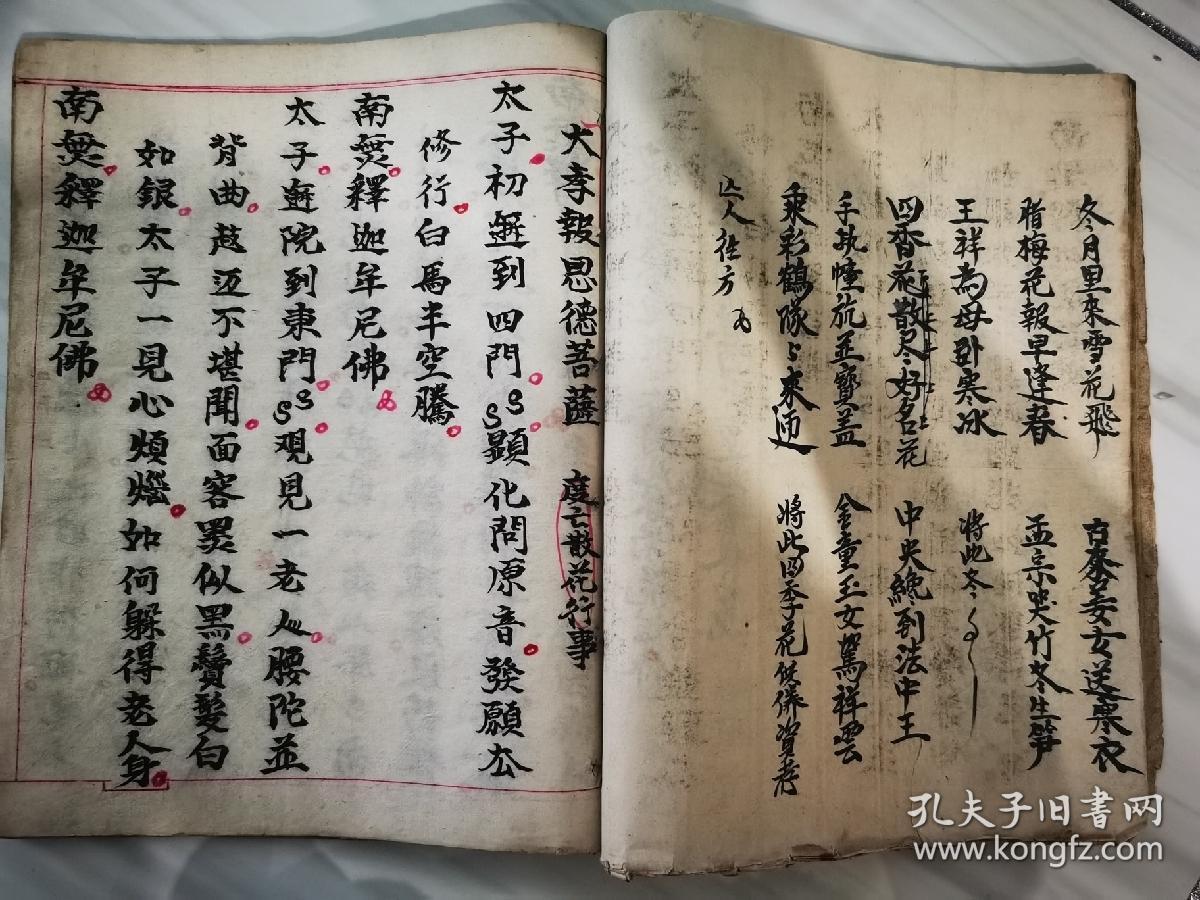 冬月里來雪花飛 古來姜女送寒衣
腊梅花報早逢春 孟宗哭竹冬生笋
王祥為母卧寒冰 將此冬
四香花散尽好名花 中央總到法中王
手执幢旛並寶盖 金童玉女駕祥雲
乘彩鶴隊々來迎 將此四季花
亡人往方
大孝報恩德菩薩 度亡散花行事
太子初遊到四門 顯化問原音 發願去
修行白馬半空騰
南無釋迦牟尼佛
太子遊院到東門 观見一老人 腰陀並
背曲 赵迈不堪聞 面容罢似黑 鬢髮白
如銀 太子一見心煩惱 如何躲得老人身
南無釋迦牟尼佛
孔夫子旧书网
www.kongfz.com